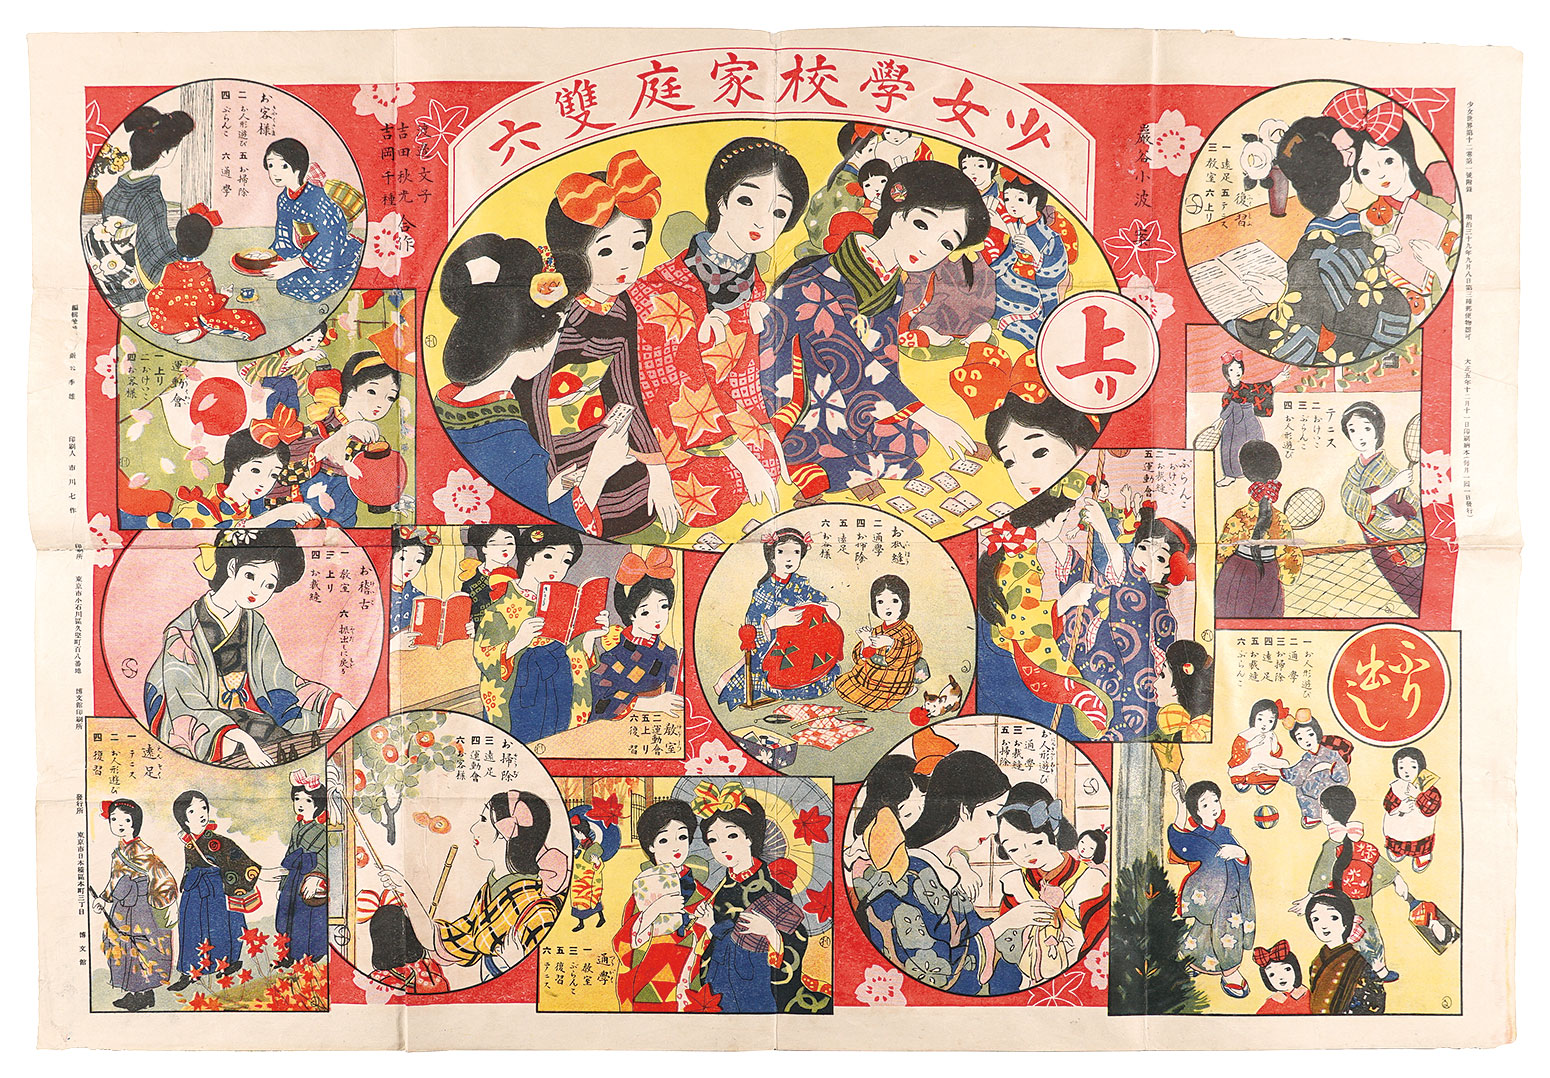 少女學校家庭雙六
巖谷小波 案
渡邊文子
吉田秋光 合作
吉岡千種
上り
ふり出し
一 お人形遊び
二 通學
三 お掃除
四 遠足
五 お裁縫
六 ぶらんこ
復習
一 遠足 五 テニス
三 教室 六 上り
テニス
二 おけいこ
三 ぶらんこ
四 お人形遊び
ぶらんこ
一 おけいこ
二 お裁縫
五 運動會
お裁縫
二 通學
四 お掃除
五 遠足
六 お客樣
お人形遊び
一 通學
三 お裁縫
五 お掃除
通學
一 教室
三 ぶらんこ
五 復習
六 テニス
教室
二 運動會
五 上り
六 復習
お掃除
三 遠足
四 運動會
六 お客樣
お稽古
一 教室 六 振出しに戻る
三 上り
四 お裁縫
遠足
一 テニス
二 お人形遊び
四 復習
運動會
一 上り
二 おけいこ
四 お客樣
お客樣
二 お人形遊び 五 お掃除
四 ぶらんこ 六 通學
少女世界第十二卷第一號附録 明治三十九年九月八日第三種郵便物認可 大正五年十二月十一日印刷納本(毎月一回一日發行)
印刷人 市川七作
印刷所 東京市小石川區久堅町百八番地 博文館印刷所
發行所 東京市日本橋區本町三丁目 博文館